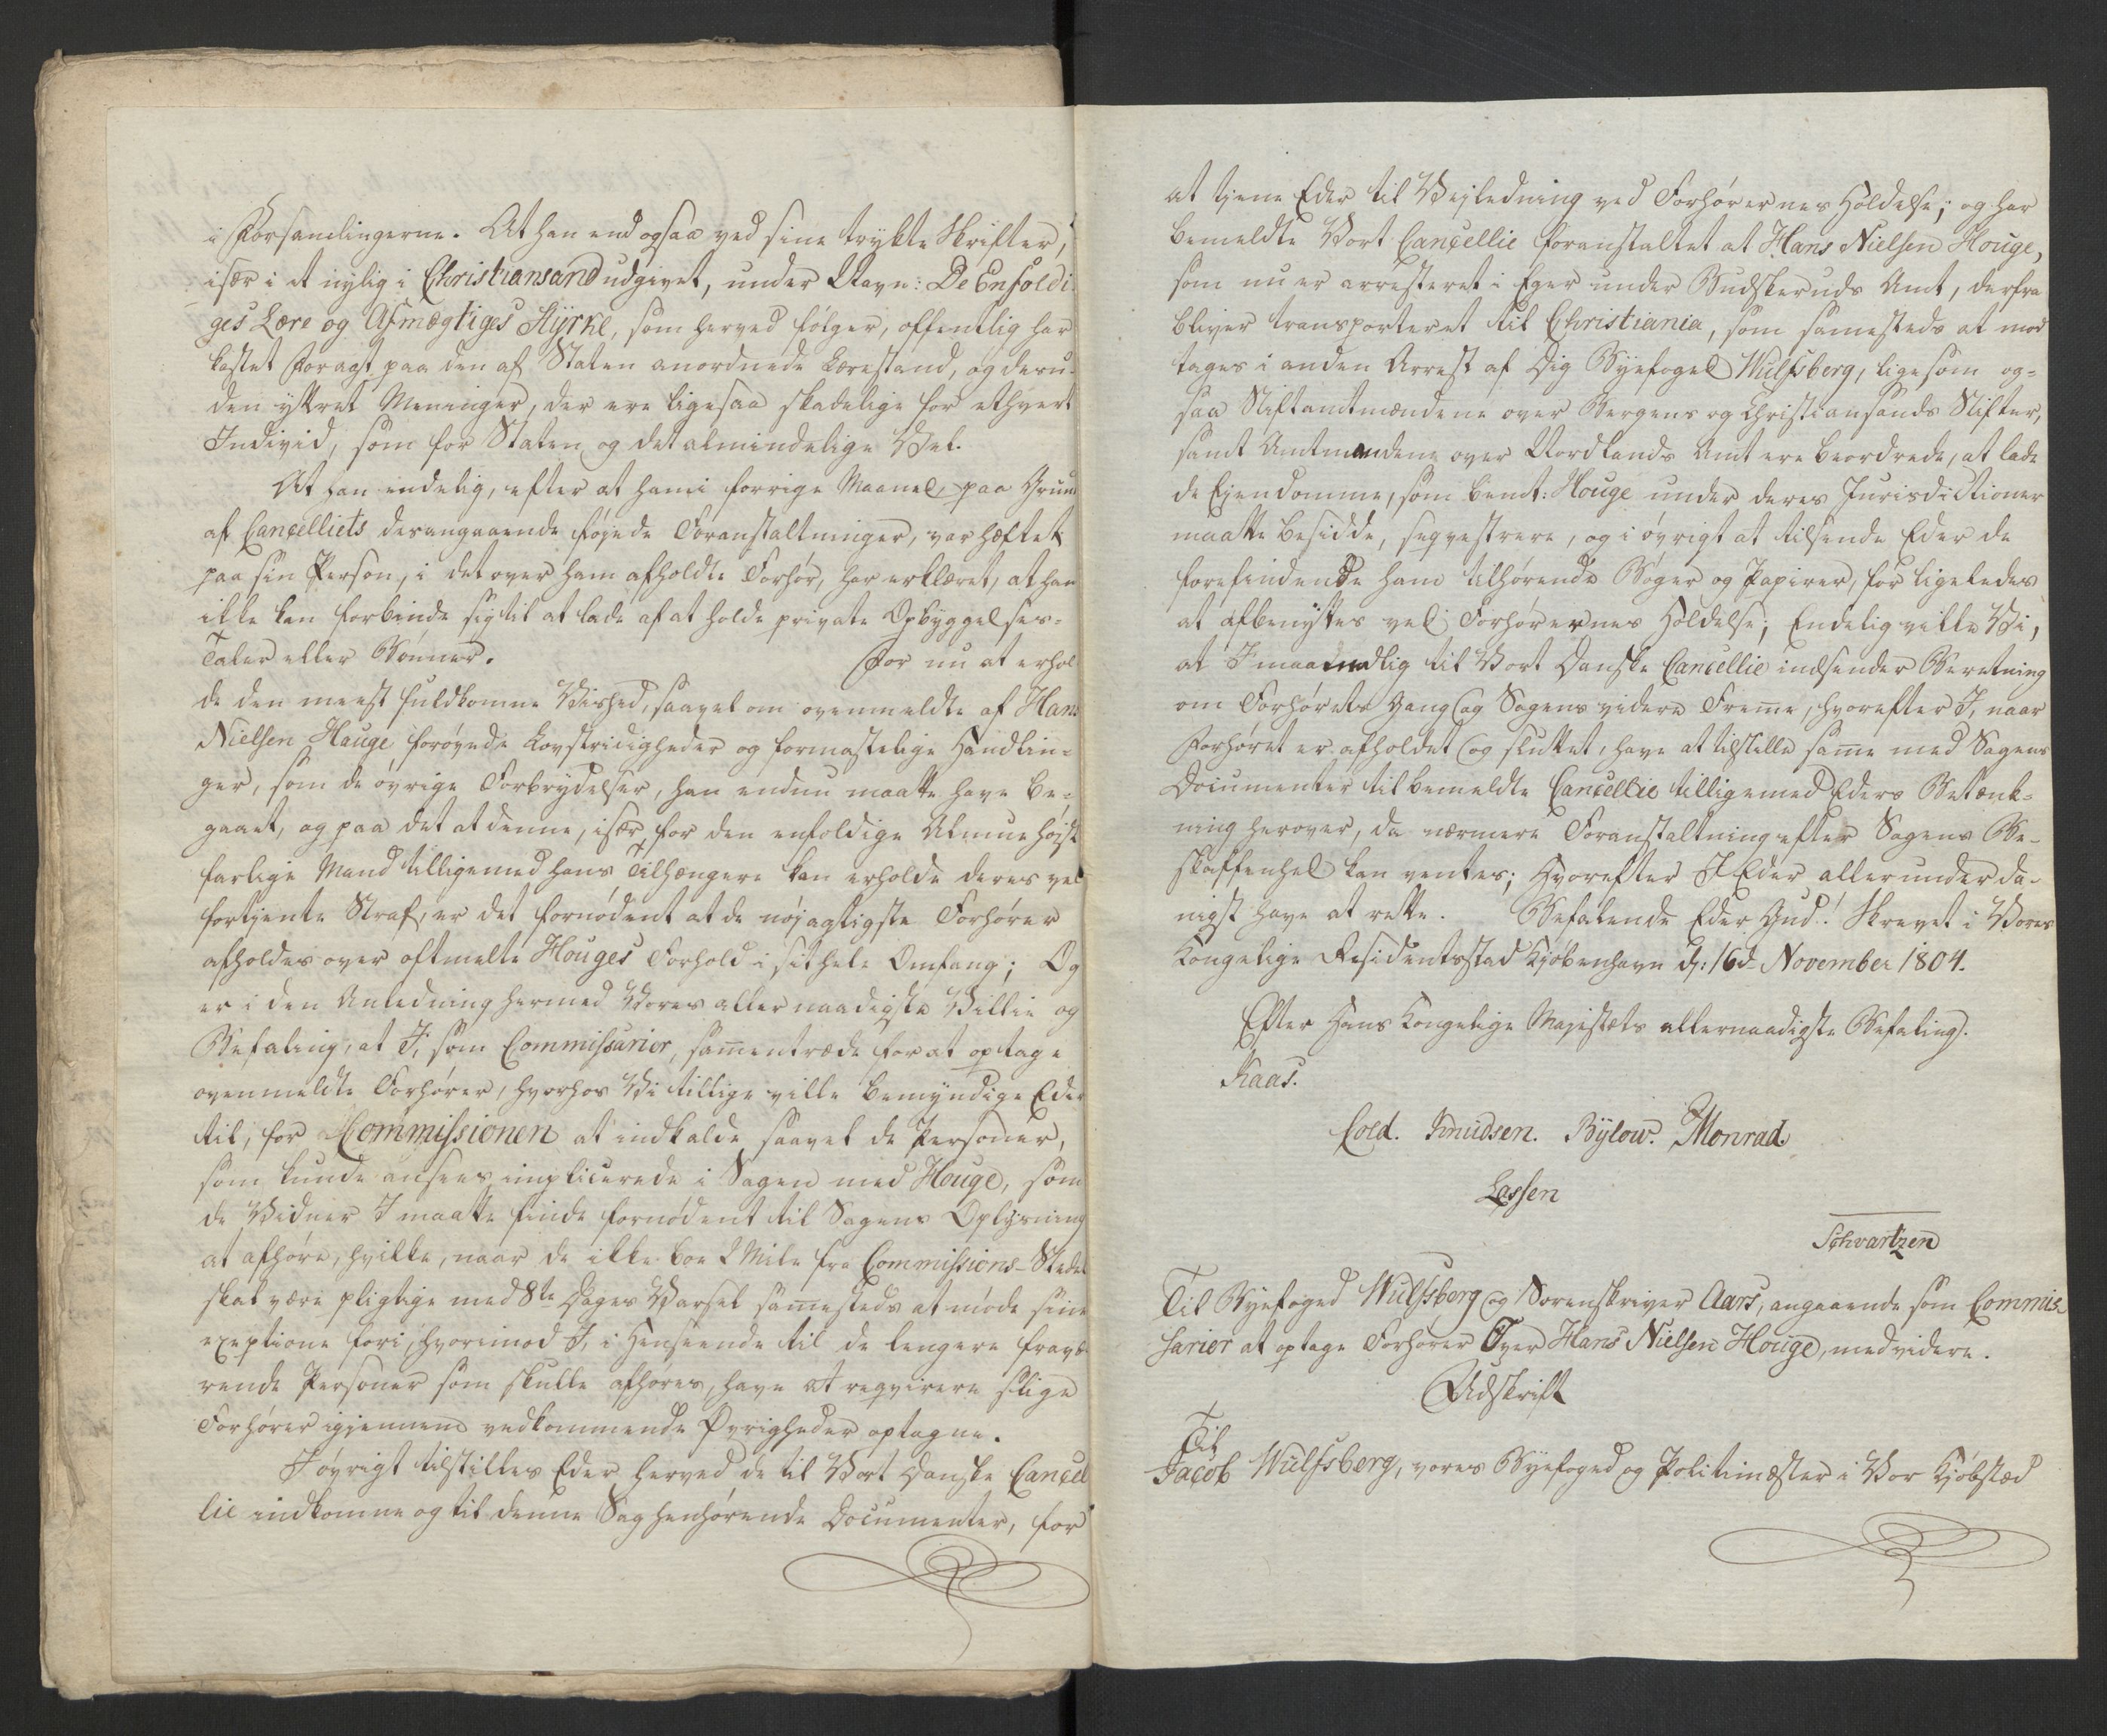 i Forsamlingerne. At han end ogsaa ved sine trykte Skrifter,
især i et nylig i Christiansand udgivet, under Navn: De Enfoldi-
ges Lære og Afmægtiges Styrke, som herved følger, offentlig har
kastet Foragt paa den af Staten anordnede Lærestand, og deru-
den yttret Meninger, der ere ligesaa skadelige for ethvert
Individ, som for Staten og det almindelige Vel.
At han endelig, efter at han i forrige Maaned, paa Grund
af Cancelliets desangaaende føjede Foranstaltninger, var hæftet
paa sin Person, i det over ham afholdte Forhør, har erklæret, at han
ikke kan forbinde sig til at lade af at holde private Opbyggelses-
Taler eller Bønner. For nu at erhol-
de den meest fuldkomne Vished, saavel om ovenmeldte af Hans
Nielsen Hauge forøvede Lovstridigheder og formastelige Handlin-
ger, som de øvrige Forbrydelser, han endnu maatte have be-
gaaet, og paa det at denne, især for den enfoldige Almue højst
farlige Mand tilligemed hans Tilhængere kan erholde deres vel
fortjente Straf, er det fornødent at de nøjagtigste Forhører
afholdes over oftmelte Houges Forhold i sit hele Omfang; Og
er i den Anledning hermed Vores allernaadigste Villie og
Befaling, at I, som Commissarier, samentræde for at optage
ovenmeldte Forhører, hvorhos Vi tillige ville bemyndige Eder
til, for Commissionen at indkalde saavel de Personer,
som kunde ansees implicerede i Sagen med Houge, som
de Vidner I maatte finde fornødent til Sagens Oplysning
at afhøre, hvilke, naar de ikke boe 2 Mile fra Commissions-Stedet
skal være pligtige med 8te Dages Varsel samesteds at møde sine
exeptione fori, hvorimod I, i Henseende til de længere fravæ-
rende Personer som skulle afhøres, have at reqvirere slige
Forhører igjennem vedkommende Øvrigheder optagne.
I øvrigt tilstilles Eder herved de til Vort Danske Cancel-
lie indkomne og til denne Sag henhørende Documenter, for
at tjene Eder til Vejledning ved Forhørernes Holdelse; og har
bemeldte Vort Cancellie foranstaltet at Hans Nielsen Houge,
som nu er arresteret i Eger under Budskeruds Amt, derfra
bliver transporteret til Christiania, som samesteds at mod
tages i anden Arrest af Dig Byefoged Wulfsberg, ligesom og-
saa Stiftamtmændene over Bergens og Christiansands Stifter,
samt Amtmandene over Nordlands Amt ere beordrede, at lade
de Ejendomme, som bemt: Houge under deres Jurisdictioner
maatte besidde, seqvestrere, og i øvrigt at tilsende Eder de
forefindende ham tilhørende Bøger og Papirer, for ligeledes
at afbenyttes ved Forhørernes Holdelse; Endelig ville Vi,
at I maanedlig til Vort Danske Cancellie indsender Beretning
om Forhørets Gang og Sagens videre Freme, hvorefter I, naar
Forhøret er afholdet og sluttet, have at tilstille same med Sagens
Documenter til bemeldte Cancellie tilligemed Eders Betænk-
ning herover, da nærmere Foranstaltning efter Sagens Be-
skaffenhed kan ventes; Hvorefter I Eder allerunderda-
nigst have at rette. Befalende Eder Gud! Skrevet i Vores
Kongelige Residentsstad Kjøbenhavn d: 16d November 1804.
Efter Hans Kongelige Majestæts allernaadigste Befaling.
Kaas.
Cold. Knudsen. Bülow. Monrad.
Lassen
Schvartzen
Til Byefoged Wulfsberg og Sorenskriver Aars, angaaende som Commis-
sarier at optage Forhører Over Hans Nielsen Houge, med videre.
Udskrift
Til
Jacob Wulfsberg, vores Byefoged og Politimester i Vor Kjøbstæd